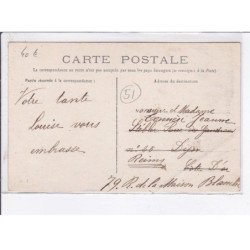 40 €
CARTE POSTALE
La correspondance au recto n'est pas acceptée par tous les pays étrangers (se renseigner à la Poste)
Partie réservée à la correspondance
Adresse du destinataire
51
Votre tante
Louise vous
embrasse
et Madame
Jeanne
Dijon
Reims Côte d'Or
79. R. de la Maison Blanche